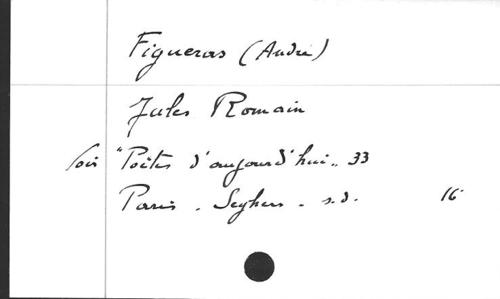 Figueras (André)
Jules Romain
Voir "Poètes d'aujourd'hui" 33
Paris - Seghers - s.d. 16